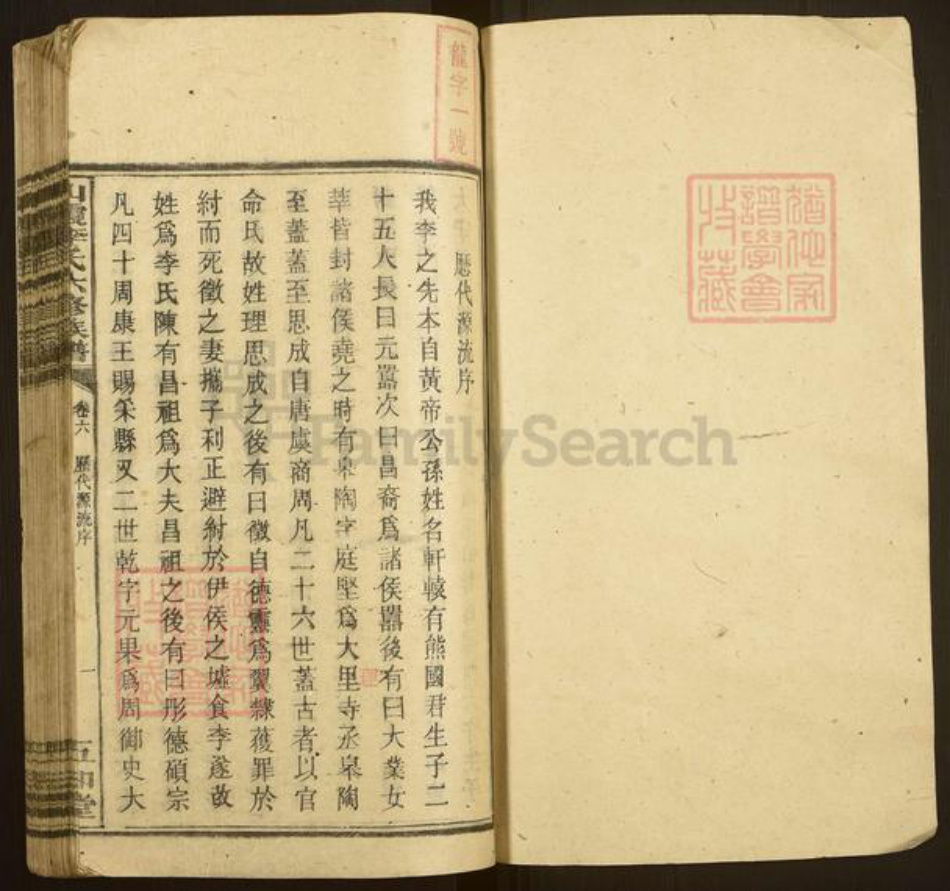 龍字一號
歷代源流序
我李之先本自黃帝公孫姓名軒轅有熊國君生子二
十五人長曰元囂次曰昌裔爲諸侯囂後有曰大業女
莘皆封諸侯堯之時有臯陶字庭堅爲大里寺丞臯陶
至蓋蓋至思成自唐虞商周凡二十六世蓋古者以官
命氏故姓理思成之後有曰徵自德靈爲翼隸蒦罪於
紂而死徵之妻攜子利正避紂於伊侯之墟食李遂改
姓爲李氏陳有昌祖爲大夫昌祖之後有曰彤德碩宗
凡四十周康王賜采縣又二世乾字元果爲周御史大
李氏六修族譜
卷六
歷代源流序
一
FamilySearch
猶他家
譜學會
收藏